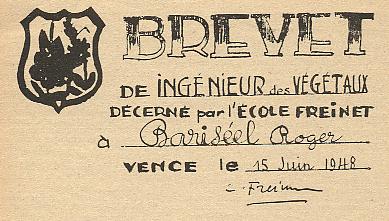 BREVET
DE INGÉNIEUR des VÉGÉTAUX
DÉCERNÉ par l'ÉCOLE FREINET
à Bariséel Roger
VENCE le 15 Juin 1948
C. Freinet